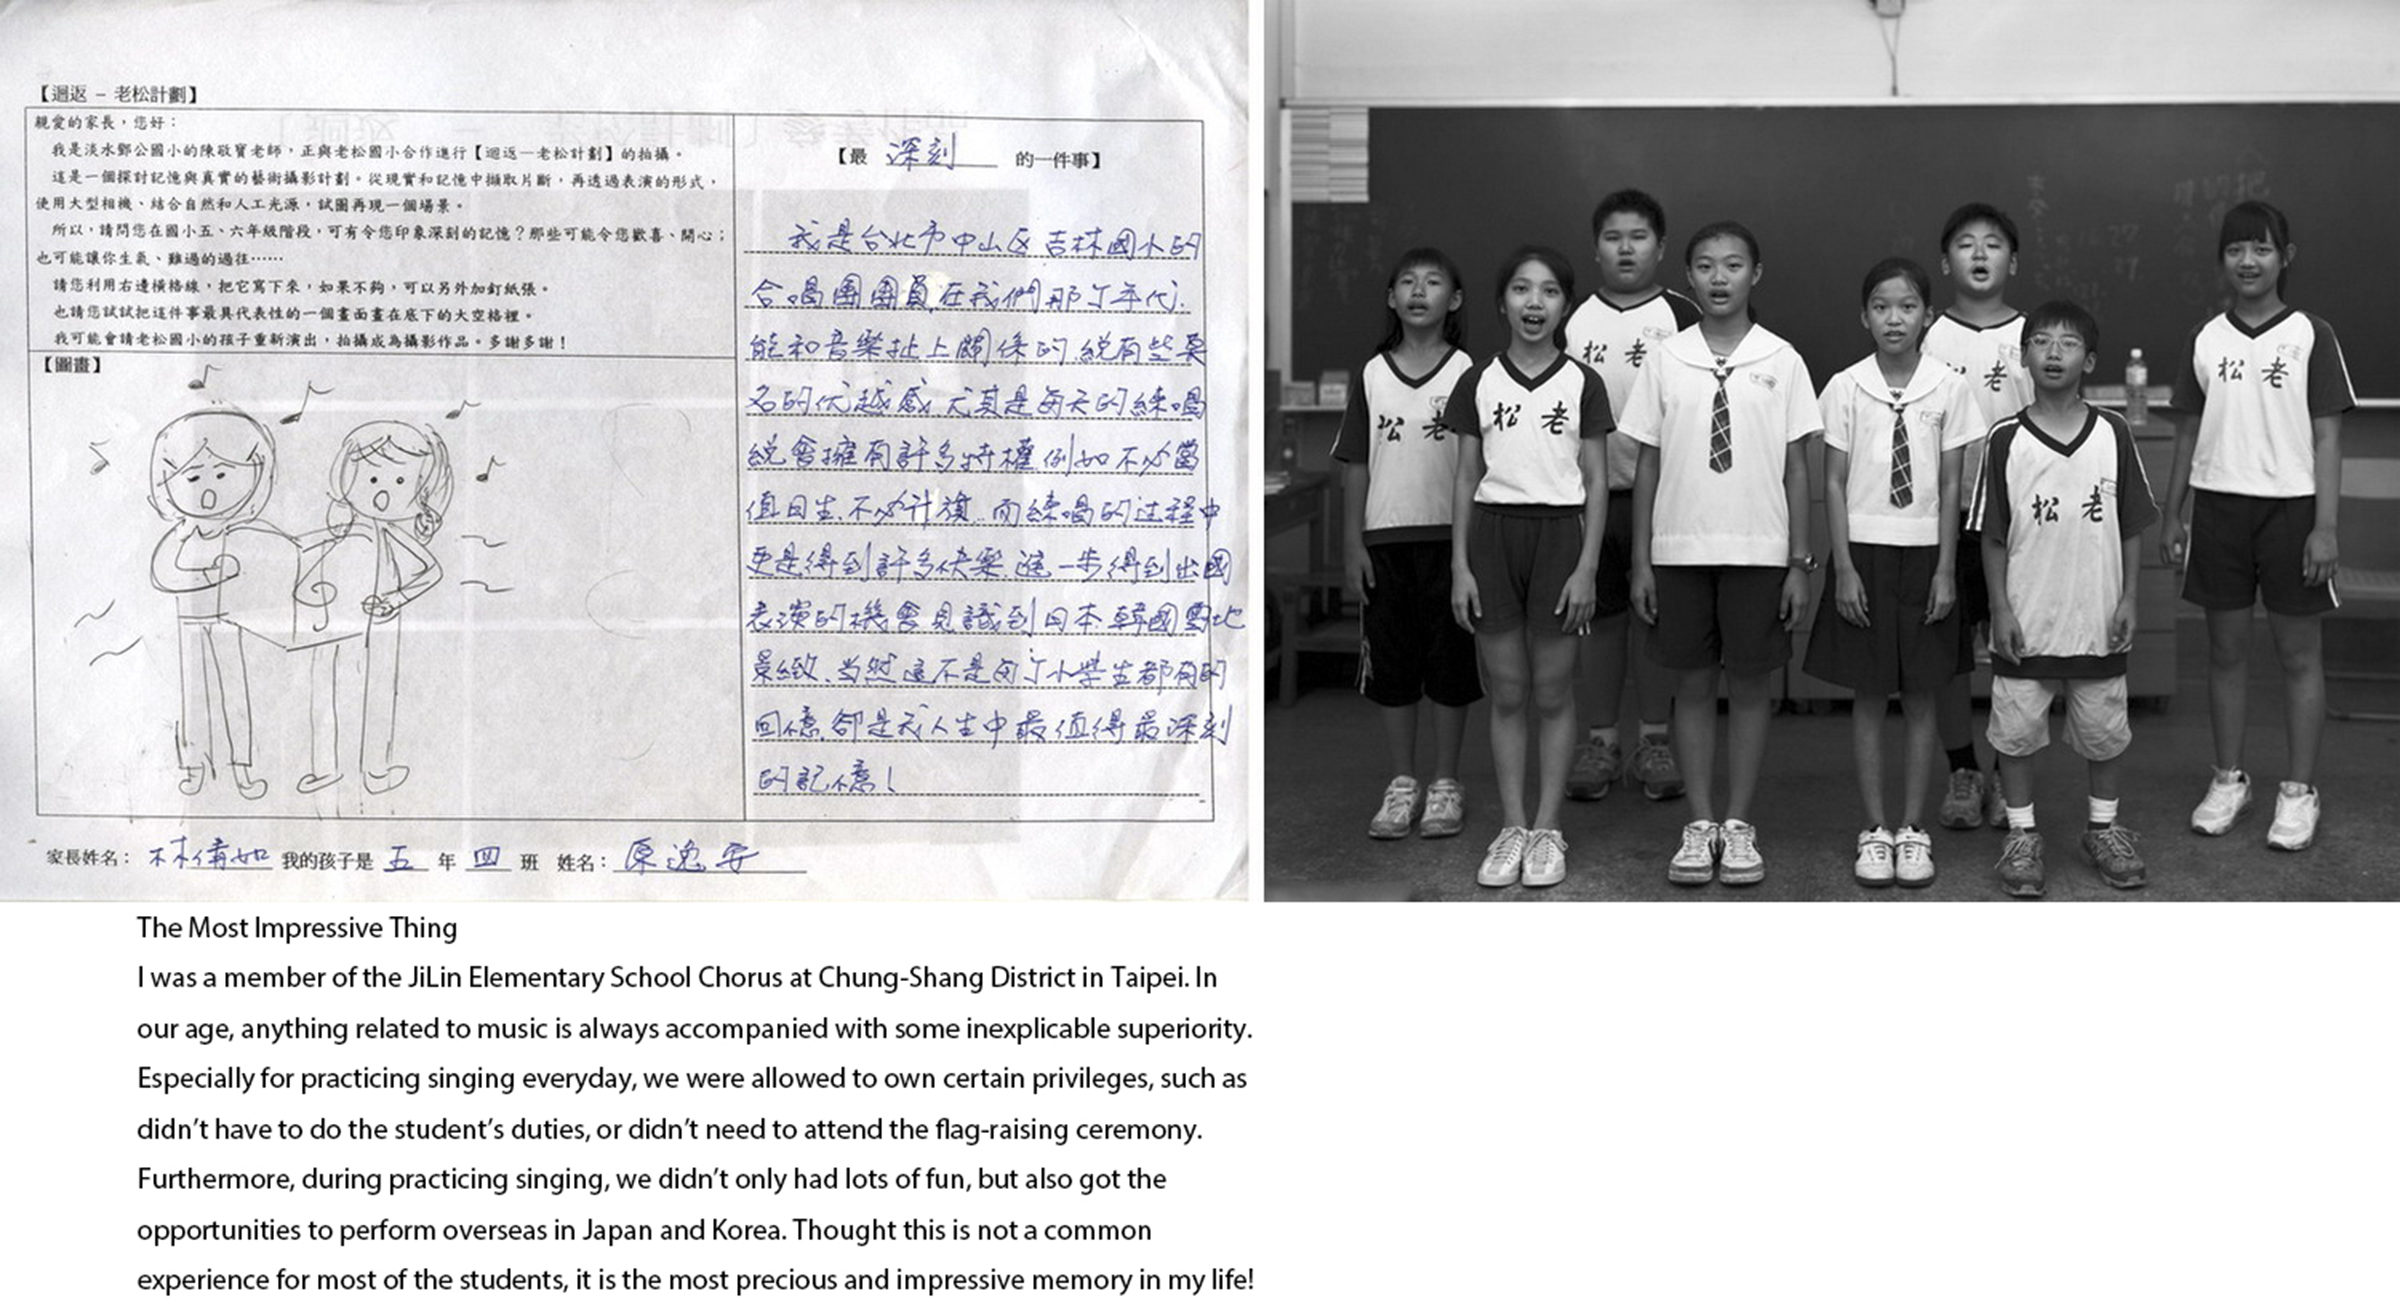 【迴返 – 老松計劃】
親愛的家長，您好：
我是淡水鄧公國小的陳敬寶老師，正與老松國小合作進行【迴返—老松計劃】的拍攝。
這是一個探討記憶與真實的藝術攝影計劃。從現實和記憶中擷取片斷，再透過表演的形式，
使用大型相機、結合自然和人工光源，試圖再現一個場景。
所以，請問您在國小五、六年級階段，可有令您印象深刻的記憶？那些可能令您歡喜、開心；
也可能讓你生氣、難過的過往……
請您利用右邊橫格線，把它寫下來，如果不夠，可以另外加釘紙張。
也請您試試把這件事最具代表性的一個畫面畫在底下的大空格裡。
我可能會請老松國小的孩子重新演出，拍攝成為攝影作品。多謝多謝！
【圖畫】
【最 深刻 的一件事】
我是台北市中山区吉林國小的
合唱團團員,在我們那丁年代.
能和音樂扯上關係的,総有些莫
名的优越感.尤其是每天的練唱
総會擁有許多特權例如不必當
值日生.不必升旗..而練唱的过程中
更是得到許多快樂.進一步得到出國
表演的機會見識到日本韓國雪地
景緻.当然這不是每丁小學生都有的
回憶.卻是我人生中最值得最深刻
的記憶!
家長姓名：林倩如 我的孩子是 五 年 四 班 姓名：原逸安
松 老
松 老
松 老
松 老
松 老
松 老
The Most Impressive Thing
I was a member of the JiLin Elementary School Chorus at Chung-Shang District in Taipei. In
our age, anything related to music is always accompanied with some inexplicable superiority.
Especially for practicing singing everyday, we were allowed to own certain privileges, such as
didn’t have to do the student’s duties, or didn’t need to attend the flag-raising ceremony.
Furthermore, during practicing singing, we didn’t only had lots of fun, but also got the
opportunities to perform overseas in Japan and Korea. Thought this is not a common
experience for most of the students, it is the most precious and impressive memory in my life!